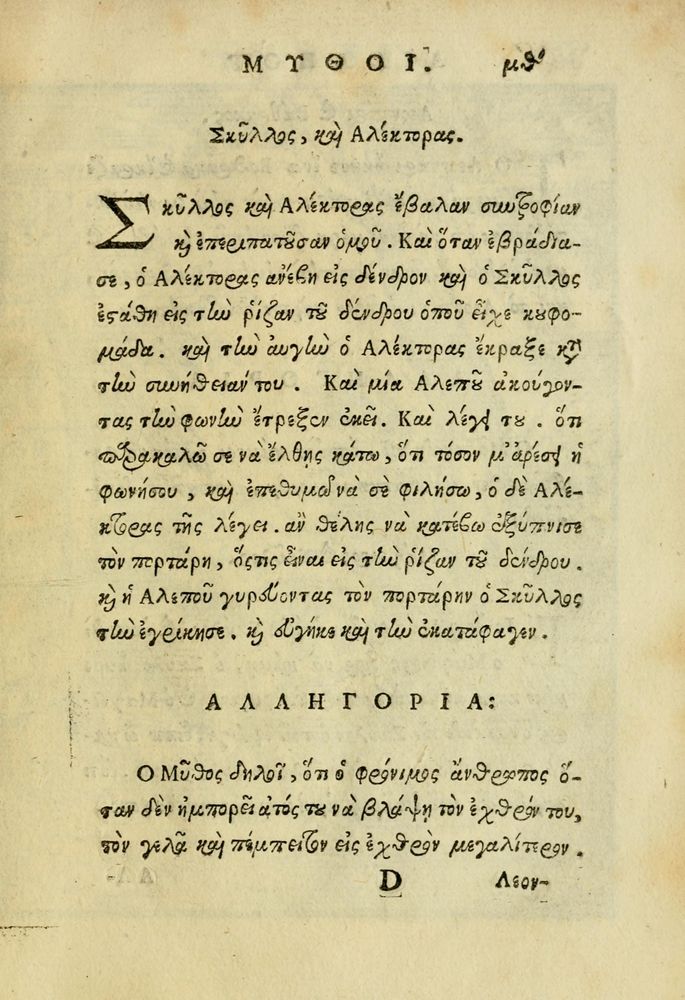 ΜΥΘΟΙ. μθʹ
Σκῦλλος, καὶ Αλέκτορας.
Σκῦλλος καὶ Αλέκτορας ἔβαλαν συντροφίαν
κὶ ἐπερπατοῦσαν ὁμοῦ. Καὶ ὅταν ἐβράδια-
σε, ὁ Αλέκτορας ἀνέβη εἰς δένδρον καὶ ὁ Σκῦλλος
ἐστάθη εἰς τὴν ῥίζαν τοῦ δένδρου ὁποῦ εἶχε κουφο-
μάδα. καὶ τὴν αὐγὴν ὁ Αλέκτορας ἔκραξε κατὰ
τὴν συνήθειάν του. Καὶ μία Αλεποῦ ἀκούγον-
τας τὴν φωνὴν ἔτρεξεν ἐκεῖ. Καὶ λέγει του. ὅτι
παρακαλῶ σε νὰ ἔλθης κάτω, ὅτι τόσον μ' ἀρέσει ἡ
φωνήσου, καὶ ἐπεθυμῶ νὰ σὲ φιλήσω, ὁ δὲ Αλέ-
κτορας τῆς λέγει. ἂν θέλης νὰ κατέβω ἐξύπνισε
τὸν πορτάρη, ὅςτις εἶναι εἰς τὴν ῥίζαν τοῦ δένδρου.
κὶ ἡ Αλεποῦ γυρεύοντας τὸν πορτάρην ὁ Σκῦλλος
τὴν ἐγρίκησε. κὶ εὐγῆκε καὶ τὴν ἐκατάφαγεν.
ΑΛΛΗΓΟΡΙΑ:
Ο Μῦθος δηλοῖ, ὅτι ὁ φρόνιμος ἄνθρωπος ὅ-
ταν δὲν ἠμπορεῖ ἀτός του νὰ βλάψη τὸν ἐχθρόν του,
τὸν γελᾶ καὶ πέμπει τον εἰς ἐχθρὸν μεγαλίτερον.
D Λεον-